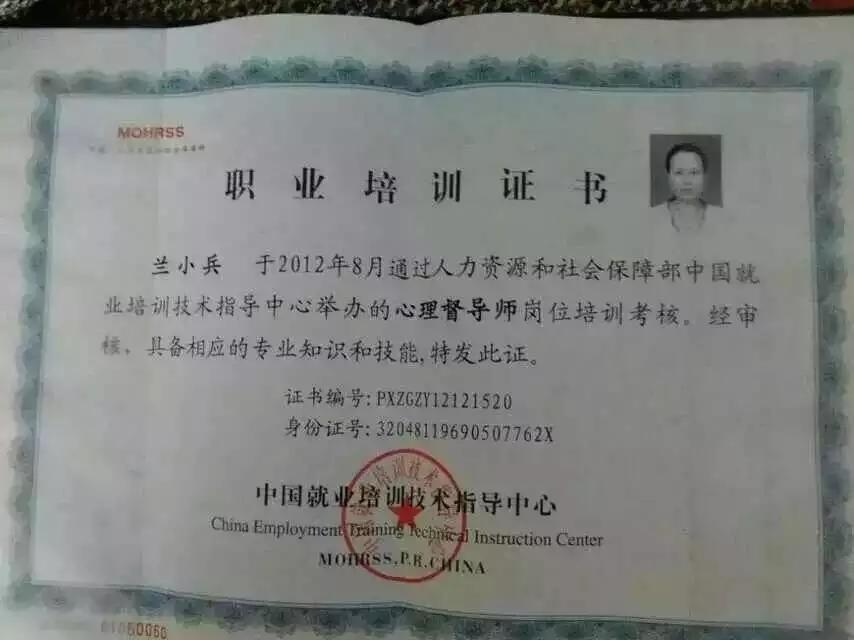 MOHRSS
职业培训证书
兰小兵 于2012年8月通过人力资源和社会保障部中国就
业培训技术指导中心举办的心理督导师岗位培训考核。经审
核，具备相应的专业知识和技能，特发此证。
证书编号：PXZGZY12121520
身份证号：32048119690507762X
中国就业培训技术指导中心
China Employment Training Technical Instruction Center
MOHRSS,P.R.CHINA